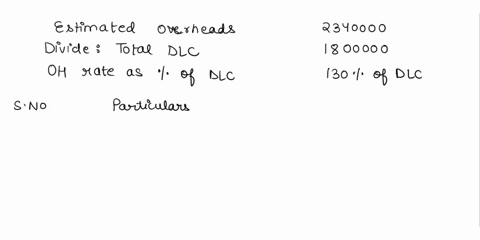 Estimated overheads 2340000
Divide: Total DLC 1800000
OH rate as % of DLC 130% of DLC
S.NO Particulars